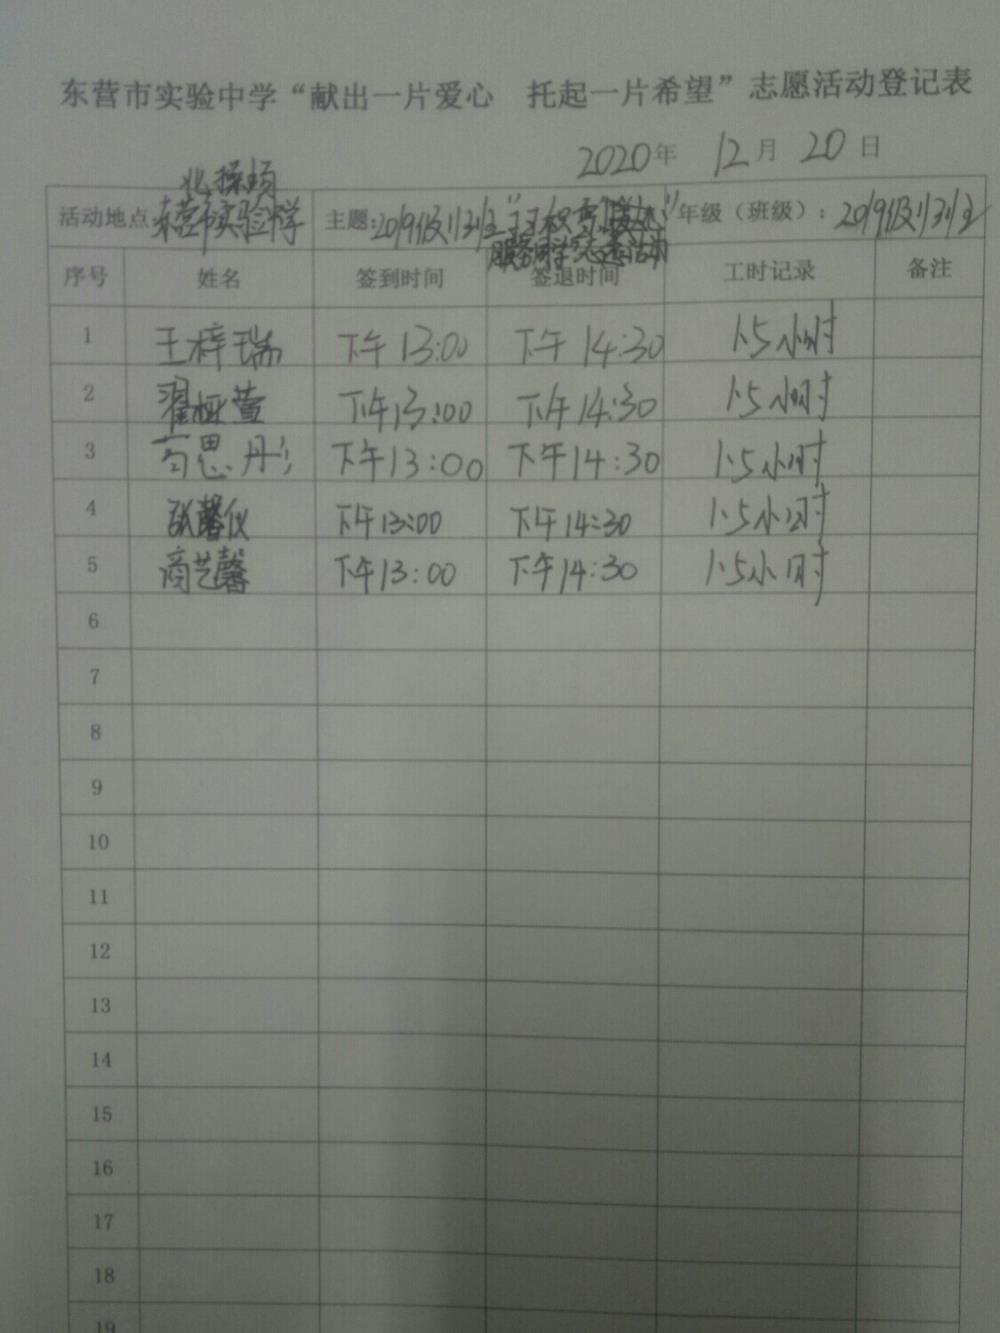 东营市实验中学“献出一片爱心 托起一片希望”志愿活动登记表
2020年 12月 20日
北操场
活动地点:东营市实验中学 主题:2019级13班 年级（班级）: 2019级13班
服务同学”志愿活动
序号 姓名 签到时间 签退时间 工时记录 备注
1 王梓瑞 下午13:00 下午14:30 1.5小时
2 翟桠萱 下午13:00 下午14:30 1.5小时
3 思彤 下午13:00 下午14:30 1.5小时
4 张馨仪 下午13:00 下午14:30 1.5小时
5 商艺馨 下午13:00 下午14:30 1.5小时
6
7
8
9
10
11
12
13
14
15
16
17
18
19